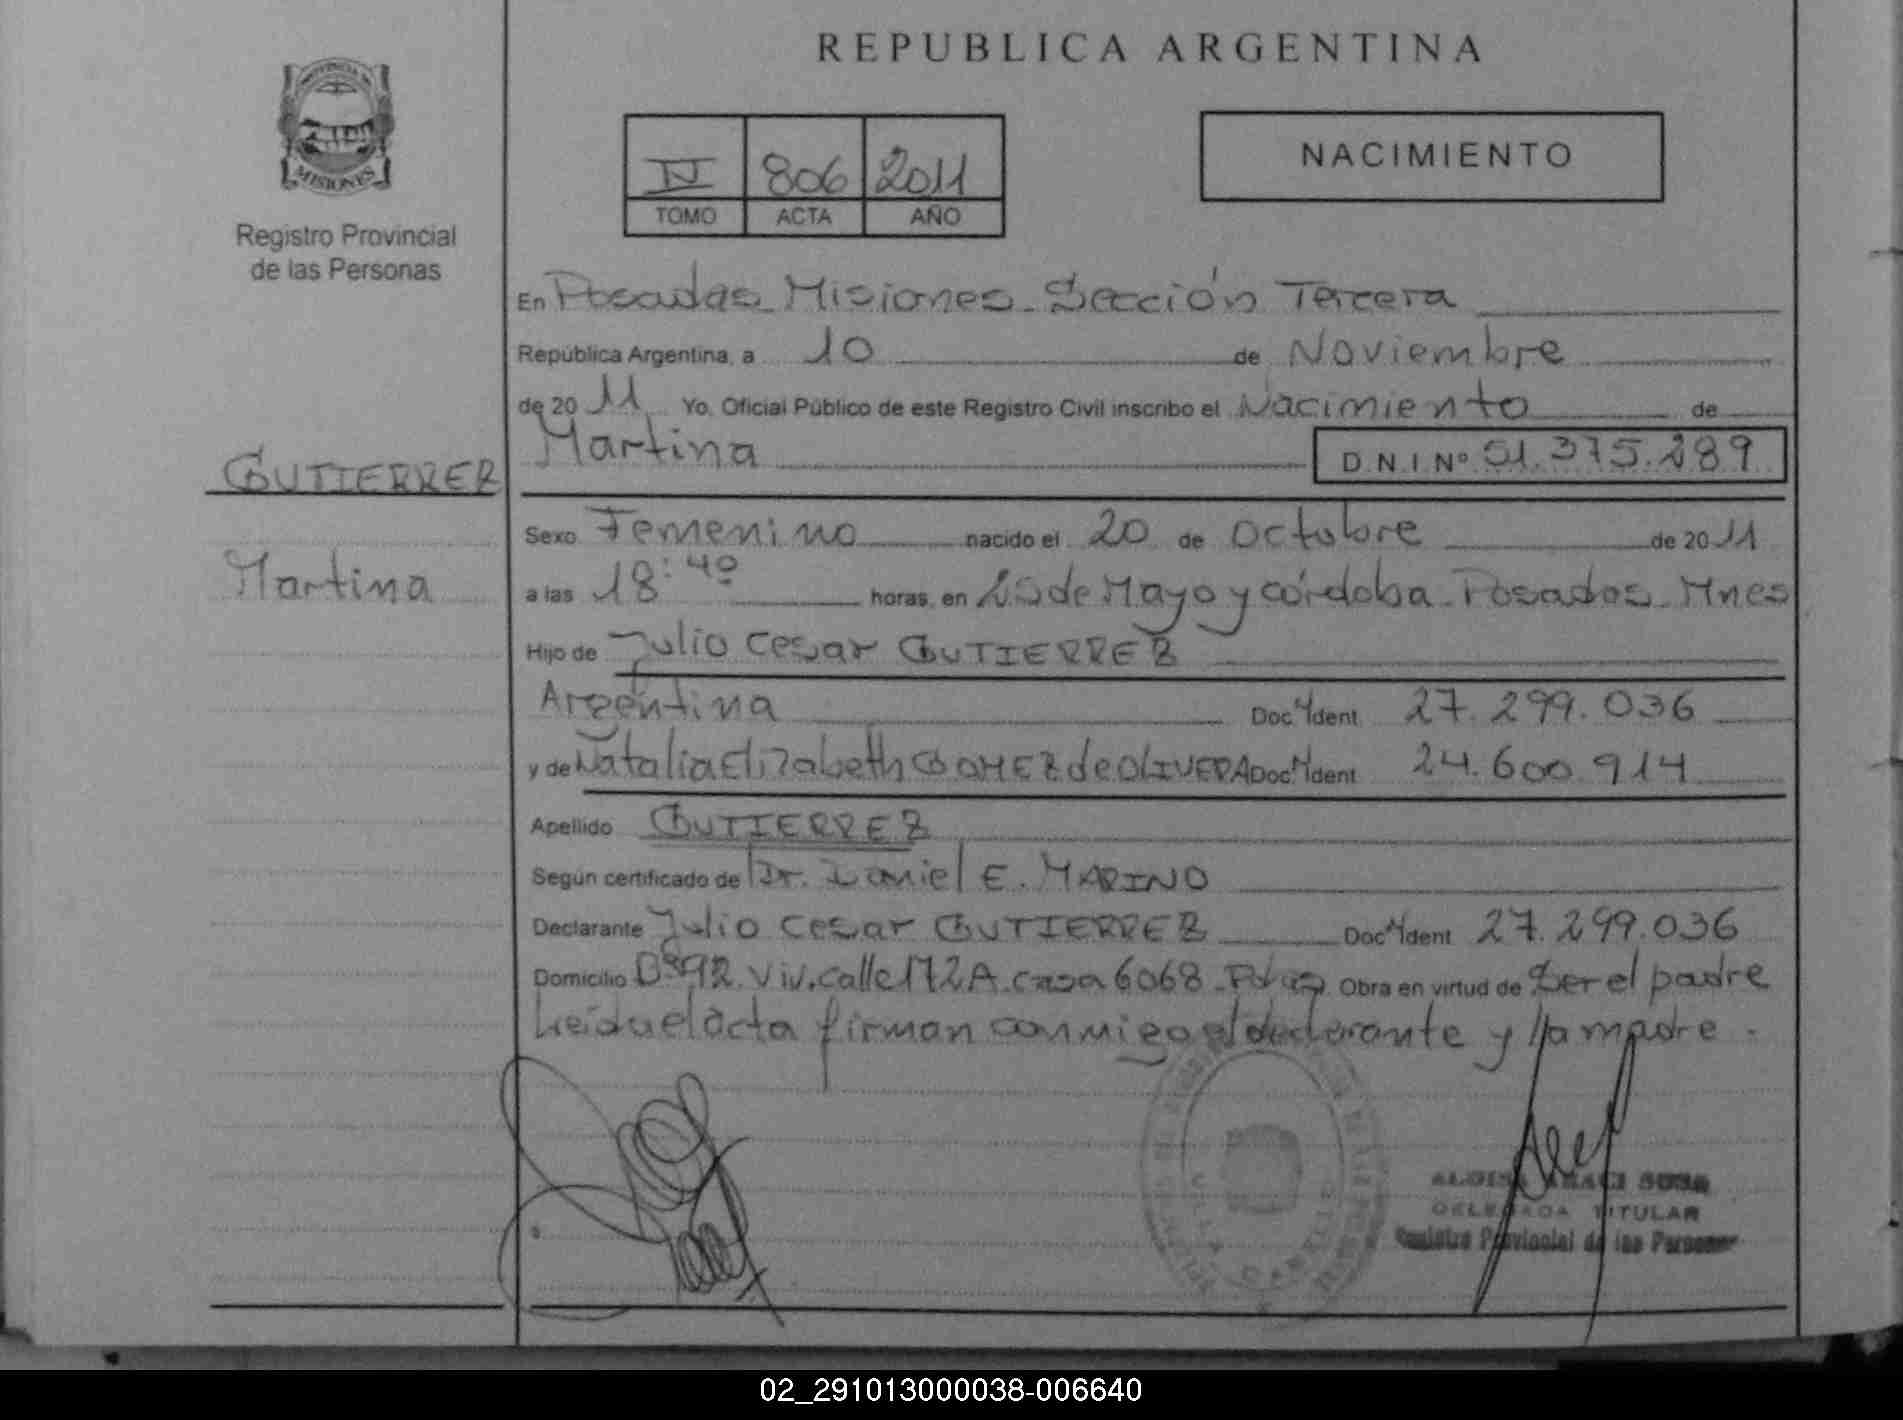 REPUBLICA ARGENTINA
PROVINCIA DE
MISIONES
Registro Provincial
de las Personas
IV 806 2011
TOMO ACTA AÑO
NACIMIENTO
En Posadas Misiones Sección Tercera
República Argentina, a 10 de Noviembre
de 20 11 Yo, Oficial Público de este Registro Civil inscribo el Nacimiento de
Martina D.N.I Nº 51.375.289
GUTIERREZ
Martina
Sexo Femenino nacido el 20 de Octubre de 20 11
a las 18:40 horas, en 25 de Mayo y córdoba Posadas Mnes
Hijo de Julio Cesar GUTIERREZ
Argentina Doc. Ident 27.299.036
y de Natalia Elizabeth GOMEZ de OLIVERA Doc. Ident 24.600.914
Apellido GUTIERREZ
Según certificado de Dr. Daniel E. MARINO
Declarante Julio Cesar GUTIERREZ Doc. Ident 27.299.036
Domicilio Bº 92 Viv. calle 172A casa 6068 Pdas Obra en virtud de Ser el padre
Leída el acta firman conmigo el declarante y la madre.
DELEGADA TITULAR
Registro Provincial de las Personas
02_291013000038-006640